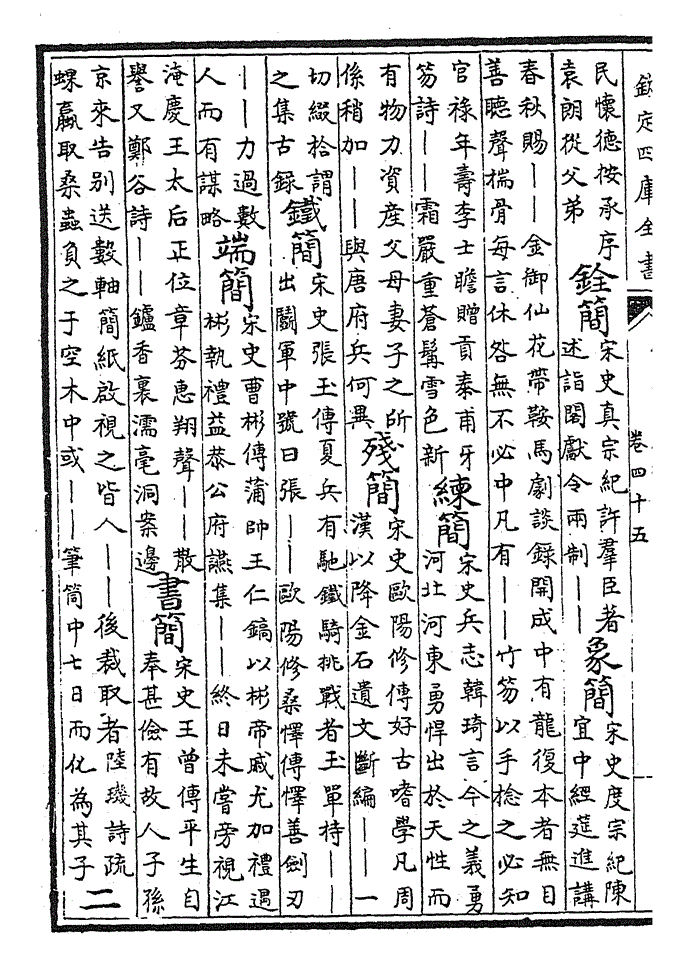 欽定四庫全書
卷四十五
民懷德按承序
袁朗從父弟
銓簡
宋史真宗紀許羣臣著
述詣閣獻令兩制——
象簡
宋史度宗紀陳
宜中經筵進講
春秋賜——金御仙花帶鞍馬劇談錄開成中有龍復本者無目
善聽聲揣骨每言休咎無不必中凡有——竹笏以手捻之必知
官祿年壽李士瞻贈貢泰甫牙
笏詩——霜嚴重蒼髯雪色新
練簡
宋史兵志韓琦言今之義勇
河北河東勇悍出於天性而
有物力資産父母妻子之所
係稍加——與唐府兵何異
殘簡
宋史歐陽修傳好古嗜學凡周
漢以降金石遺文斷編——一
切綴拾謂
之集古錄
鐵簡
宋史張玉傳夏兵有馳鐵騎挑戰者玉單持——
出鬭軍中號曰張——歐陽修桑懌傳懌善劍刃
——力過數
人而有謀略
端簡
宋史曹彬傳蒲帥王仁鎬以彬帝戚尤加禮遇
彬執禮益恭公府讌集——終日未嘗旁視江
淹慶王太后正位章芬惠翔聲——散
譽又鄭谷詩——鑪香裏濡毫洞案邊
書簡
宋史王曾傳平生自
奉甚儉有故人子孫
京來告别送數軸簡紙啟視之皆人——後裁取者陸璣詩疏
蜾蠃取桑蟲負之于空木中或——筆筒中七日而化為其子
二